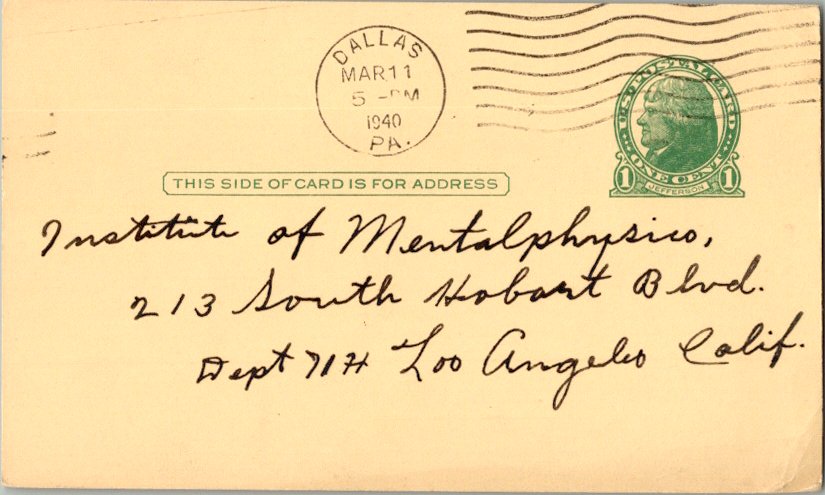 DALLAS
MAR 11
5 -PM
1940
PA.
U.S. POSTAL CARD
ONE CENT
1 JEFFERSON 1
THIS SIDE OF CARD IS FOR ADDRESS
Institute of Mentalphysics,
213 South Hobart Blvd.
Dept 71H Los Angeles Calif.